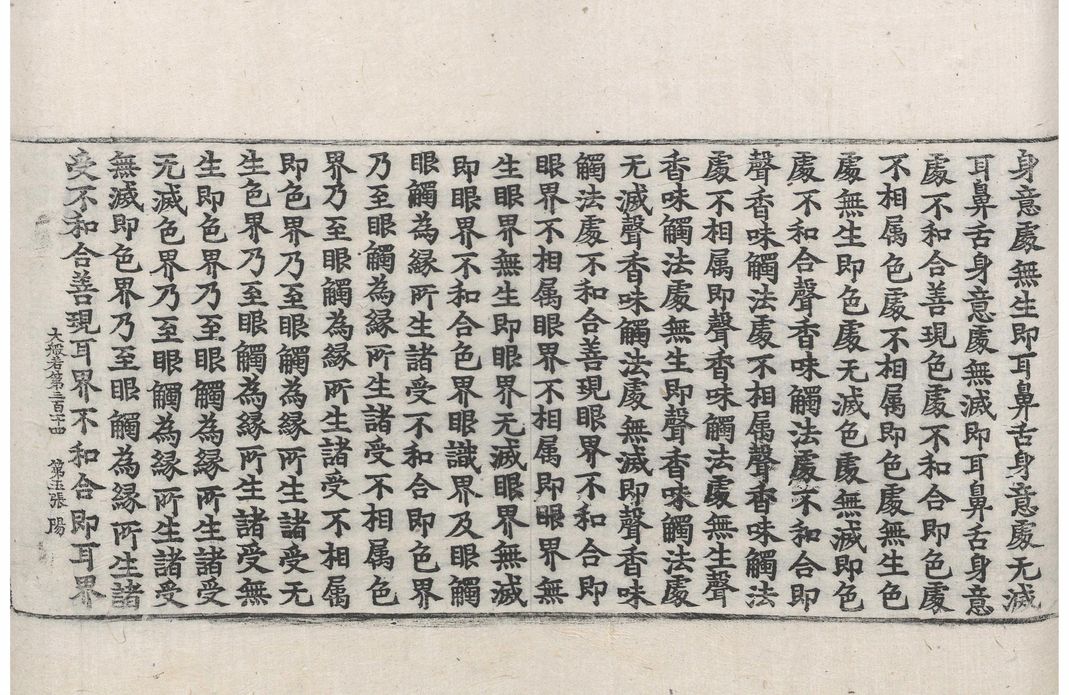 身意處無生即耳鼻舌身意處无滅
耳鼻舌身意處無滅即耳鼻舌身意
處不和合善現色處不和合即色處
不相属色處不相属即色處無生色
處無生即色處无滅色處無滅即色
處不和合聲香味觸法處不和合即
聲香味觸法處不相属聲香味觸法
處不相属即聲香味觸法處無生聲
香味觸法處無生即聲香味觸法處
无滅聲香味觸法處無滅即聲香味
觸法處不和合善現眼界不和合即
眼界不相属眼界不相属即眼界無
生眼界無生即眼界无滅眼界無滅
即眼界不和合色界眼識界及眼觸
眼觸為緣所生諸受不和合即色界
乃至眼觸為緣所生諸受不相属色
界乃至眼觸為緣所生諸受不相属
即色界乃至眼觸為緣所生諸受无
生色界乃至眼觸為緣所生諸受無
生即色界乃至眼觸為緣所生諸受
无滅色界乃至眼觸為緣所生諸受
無滅即色界乃至眼觸為緣所生諸
受不和合善現耳界不和合即耳界
大般若第三百十四 第五張 陽